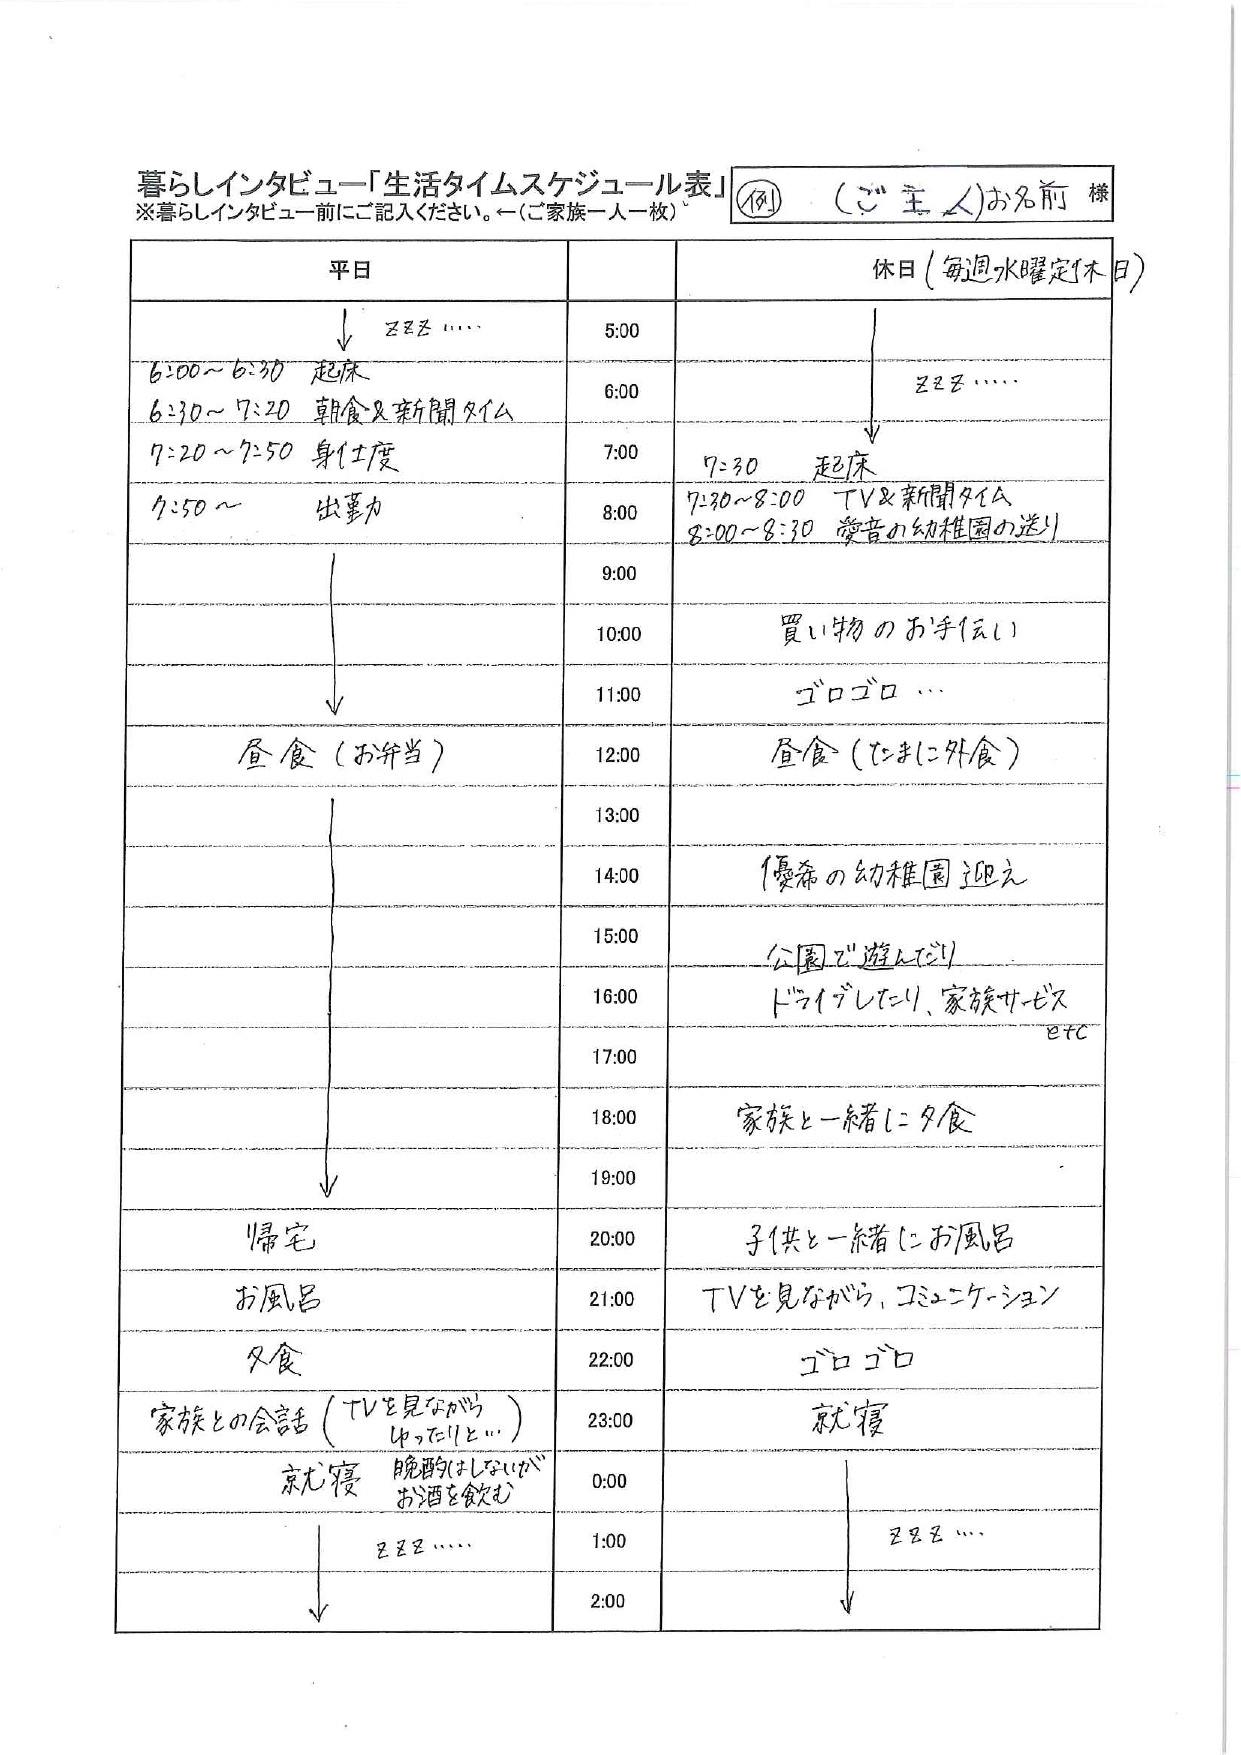 暮らしインタビュー「生活タイムスケジュール表」
例 (ご主人)お名前 様
※暮らしインタビュー前にご記入ください。←(ご家族一人一枚)
平日 休日(毎週水曜定休日)
↓ zzz ..... 5:00
6:00~6:30 起床
6:00 zzz .....
6:30~7:20 朝食&新聞タイム
7:20~7:50 身仕度 7:00
7:30 起床
7:50~ 出勤 8:00 7:30~8:00 TV&新聞タイム
8:00~8:30 愛音の幼稚園の送り
9:00
10:00 買い物のお手伝い
11:00 ゴロゴロ …
昼食(お弁当) 12:00 昼食(たまに外食)
13:00
14:00 優希の幼稚園迎え
15:00
公園で遊んだり
16:00 ドライブしたり、家族サービス
etc
17:00
18:00 家族と一緒に夕食
19:00
帰宅 20:00 子供と一緒にお風呂
お風呂 21:00 TVを見ながら、コミュニケーション
夕食 22:00 ゴロゴロ
家族との会話(TVを見ながら
ゆったりと…) 23:00 就寝
就寝 晩酌はしないが
お酒を飲む 0:00
zzz ..... 1:00 zzz ....
2:00